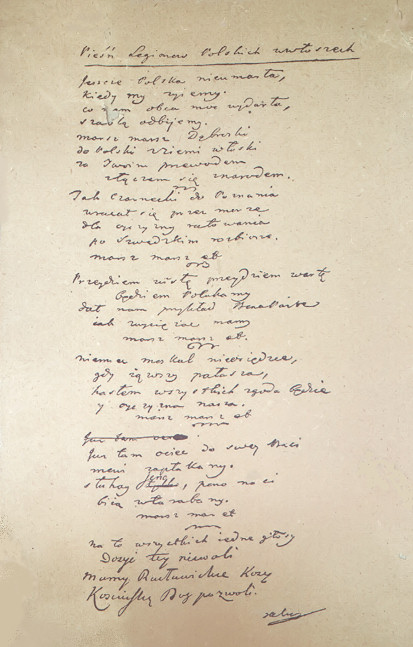 Pieśń Legionow Polskich we Włoszech
Jeszcze Polska nieumarła,
kiedy my żyiemy.
co nam obca moc wydarła,
szablą odbiiemy.
marsz marsz Dąbroski
do Polski z ziemi włoski
za Twoim przewodem
złączem się znarodem.
Jak Czarnecki do Poznania
wracał się przez morze
dla oyczyzny ratowania
po Szwedzkim rozbiorze.
marsz marsz et
Przeydziem Wisłę przeydziem Wartę
będziem Polakamy
dał nam przykład Bonaparte
iak zwyciężać mamy
marsz marsz et.
niemiec moskal nieosiędzie,
gdy iąwszy pałasza,
hasłem wszystkich zgoda będzie
y oyczyzna nasza.
marsz marsz et
Już tam
Już tam ociec do swey Basi
mówi zapłakany.
słuchay ieno, pono nasi
biią w tarabany.
marsz mar et
na to wszystkich iedne głosy
Dosyć tey niewoli
mamy Racławickie Kosy
Kosciuszkę Bog pozwoli.